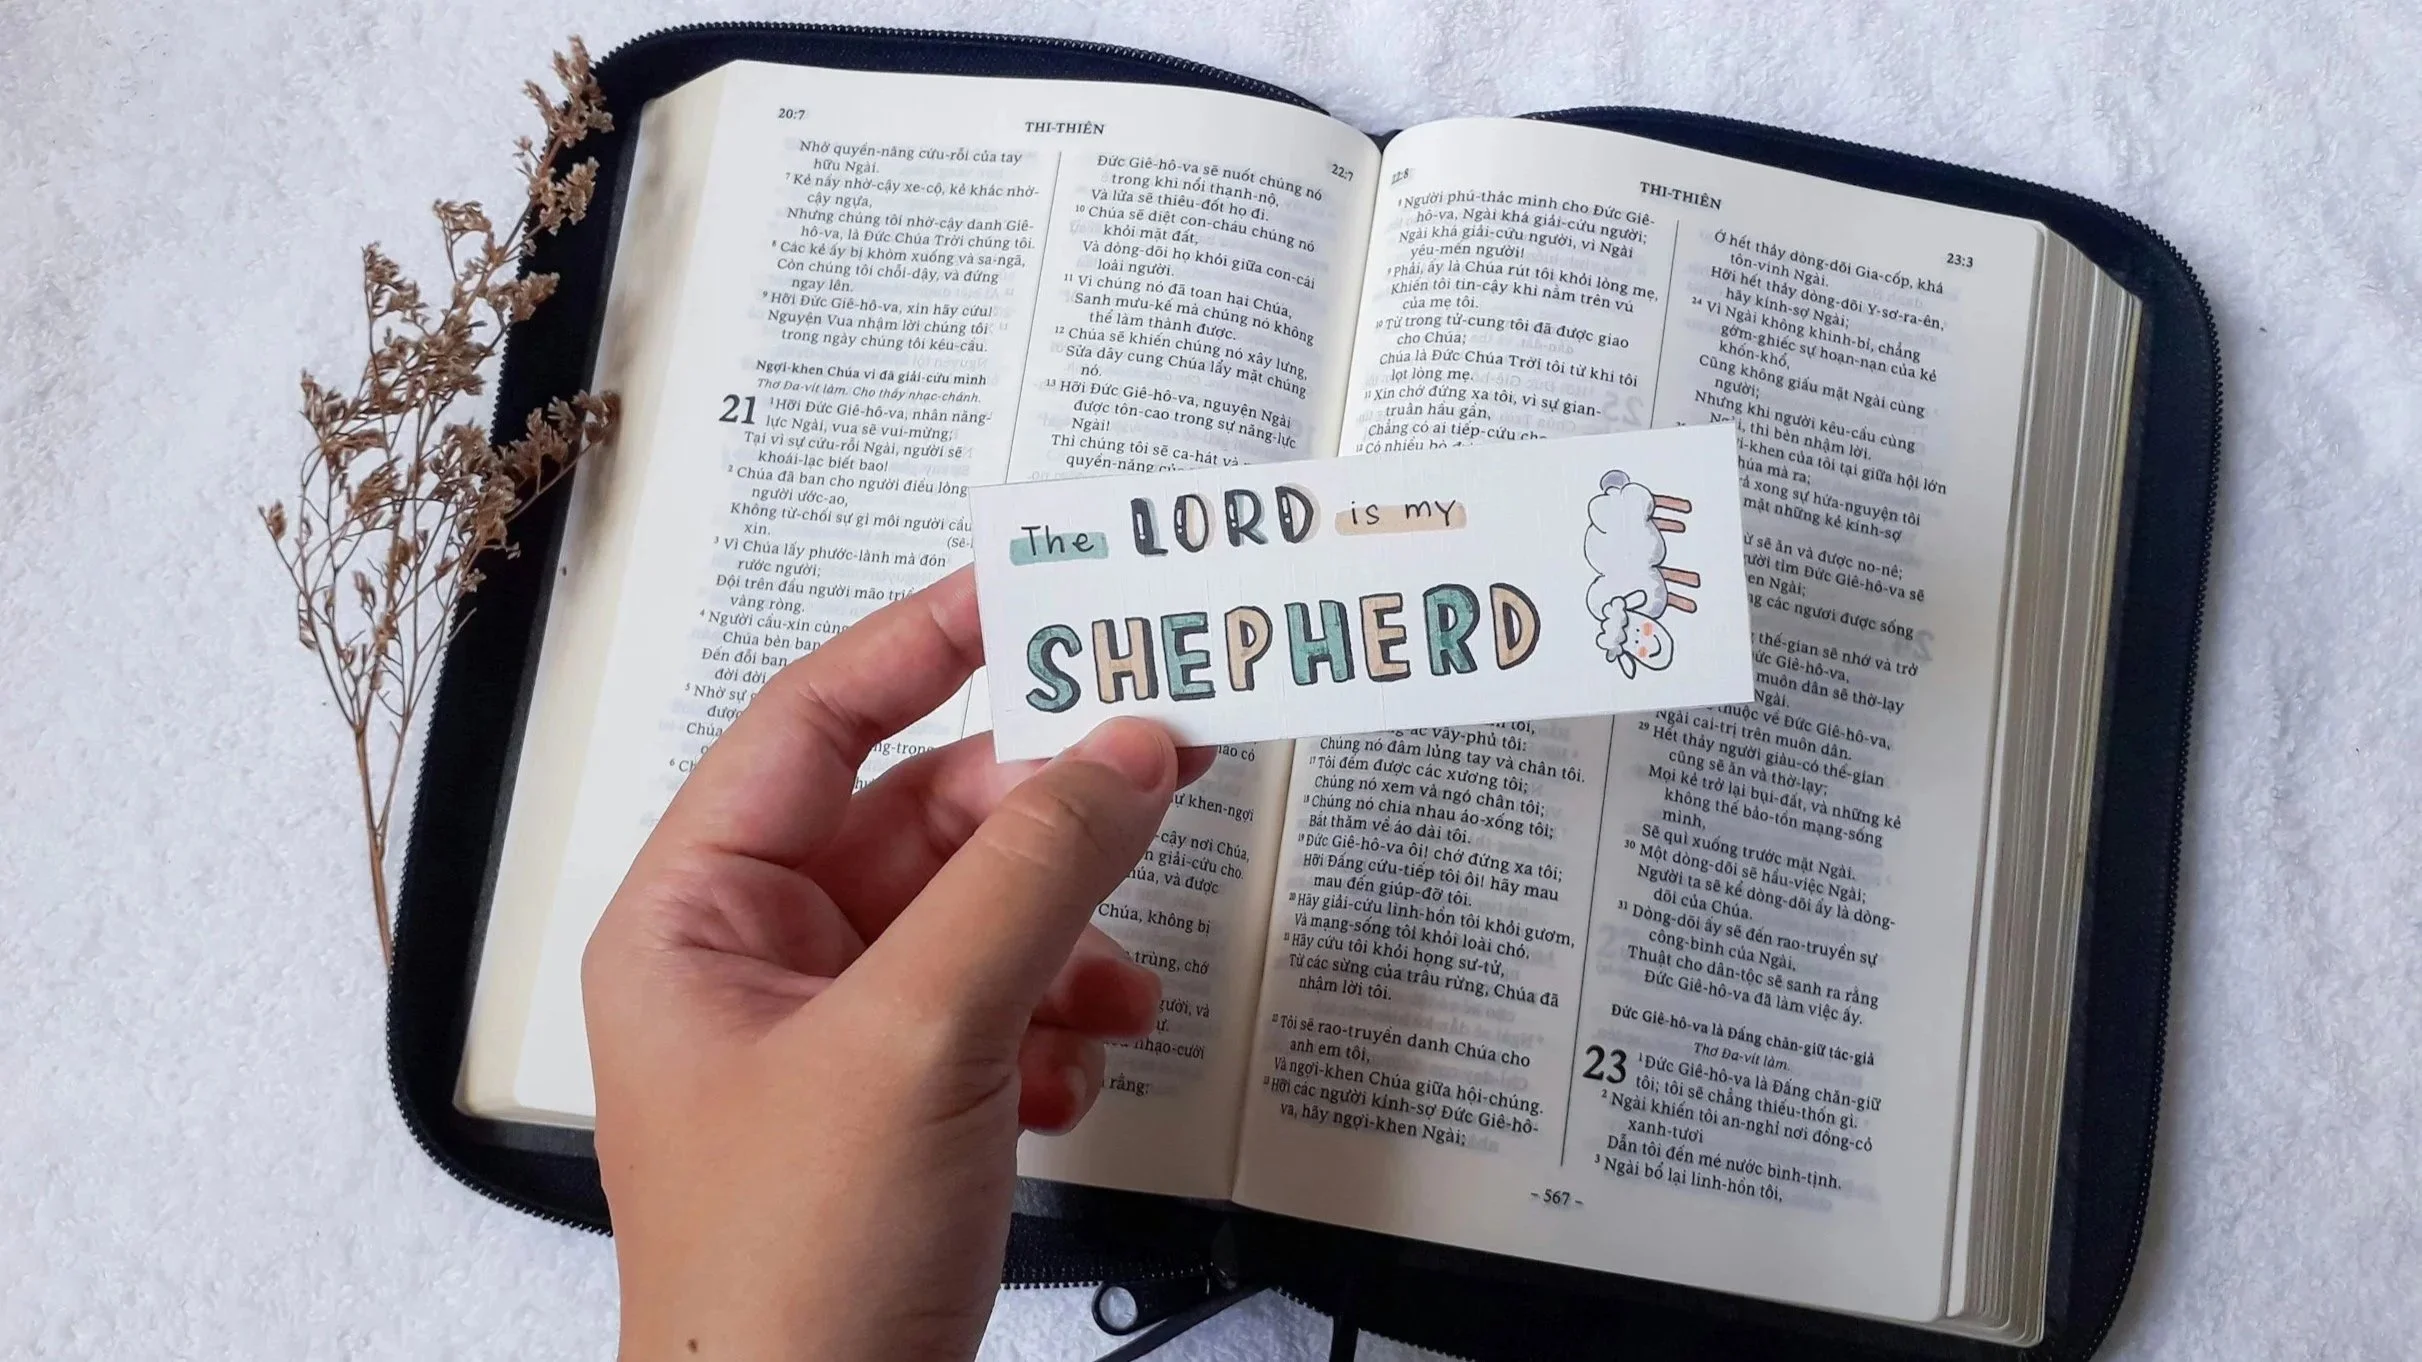 20:7
THI-THIÊN
22:7
Nhờ quyền-năng cứu-rỗi của tay
hữu Ngài.
7 Kẻ nầy nhờ-cậy xe-cộ, kẻ khác nhờ-
cậy ngựa,
Nhưng chúng tôi nhờ-cậy danh Giê-
hô-va, là Đức Chúa Trời chúng tôi.
8 Các kẻ ấy bị khòm xuống và sa-ngã,
Còn chúng tôi chỗi-dậy, và đứng
ngay lên.
9 Hỡi Đức Giê-hô-va, xin hãy cứu!
Nguyện Vua nhậm lời chúng tôi
trong ngày chúng tôi kêu-cầu.
Ngợi-khen Chúa vì đã giải-cứu mình
Thơ Đa-vít làm. Cho thầy nhạc-chánh.
21 1 Hỡi Đức Giê-hô-va, nhân năng-
lực Ngài, vua sẽ vui-mừng;
Tại vì sự cứu-rỗi Ngài, người sẽ
khoái-lạc biết bao!
2 Chúa đã ban cho người điều lòng
người ước-ao,
Không từ-chối sự gì môi người cầu
xin.
3 Vì Chúa lấy phước-lành mà đón
rước người;
Đội trên đầu người mão
vàng ròng.
4 Người cầu-xin
Chúa bèn ban
Đến đỗi ban
đời đời
5 Nhờ sự
được
Chúa
Đức Giê-hô-va sẽ nuốt chúng nó
trong khi nổi thạnh-nộ,
Và lửa sẽ thiêu-đốt họ đi.
10 Chúa sẽ diệt con-cháu chúng nó
khỏi mặt đất,
Và dòng-dõi họ khỏi giữa con-cái
loài người.
11 Vì chúng nó đã toan hại Chúa,
Sanh mưu-kế mà chúng nó không
thế làm thành được.
12 Chúa sẽ khiến chúng nó xây lưng,
Sửa dây cung Chúa lẩy mặt chúng
nó.
13 Hỡi Đức Giê-hô-va, nguyện Ngài
được tôn-cao trong sự năng-lực
Ngài!
Thì chúng tôi sẽ ca-hát và
quyền-năng
khen-ngợi
cậy nơi Chúa,
giải-cứu cho.
và được
Chúa, không bị
trùng, chớ
và
nhạo-cười
rằng:
The LORD is my
SHEPHERD
22:8
THI-THIÊN
23:3
8 Người phú-thác mình cho Đức Giê-
hô-va, Ngài khá giải-cứu người;
Ngài khá giải-cứu người, vì Ngài
yêu-mến người!
9 Phải, ấy là Chúa rút tôi khỏi lòng mẹ,
Khiến tôi tin-cậy khi nằm trên vú
của mẹ tôi.
10 Từ trong tử-cung tôi đã được giao
cho Chúa;
Chúa là Đức Chúa Trời tôi từ khi tôi
lọt lòng mẹ.
11 Xin chớ đứng xa tôi, vì sự gian-
truân hầu gần,
Chẳng có ai tiếp-cứu cho
12 Có nhiều bò
vây-phủ tôi:
Chúng nó đâm lủng tay và chân tôi.
17 Tôi đếm được các xương tôi;
Chúng nó xem và ngó chân tôi;
18 Chúng nó chia nhau áo-xống tôi;
Bắt thăm về áo dài tôi.
19 Đức Giê-hô-va ôi! chớ đứng xa tôi;
Hỡi Đấng cứu-tiếp tôi ôi! hãy mau
mau đến giúp-đỡ tôi.
20 Hãy giải-cứu linh-hồn tôi khỏi gươm,
Và mạng-sống tôi khỏi loài chó.
21 Hãy cứu tôi khỏi họng sư-tử,
Từ các sừng của trâu rừng, Chúa đã
nhậm lời tôi.
22 Tôi sẽ rao-truyền danh Chúa cho
anh em tôi,
Và ngợi-khen Chúa giữa hội-chúng.
23 Hỡi các người kính-sợ Đức Giê-hô-
va, hãy ngợi-khen Ngài;
Ớ hết thảy dòng-dõi Gia-cốp, khá
tôn-vinh Ngài.
Hỡi hết thảy dòng-dõi Y-sơ-ra-ên,
hãy kính-sợ Ngài;
24 Vì Ngài không khinh-bỉ, chẳng
gớm-ghiếc sự hoạn-nạn của kẻ
khốn-khổ,
Cũng không giấu mặt Ngài cùng
người;
Nhưng khi người kêu-cầu cùng
thì bèn nhậm lời.
khen của tôi tại giữa hội lớn
mà ra;
xong sự hứa-nguyện tôi
mặt những kẻ kính-sợ
sẽ ăn và được no-nê;
tìm Đức Giê-hô-va sẽ
Ngài;
các ngươi được sống
thế-gian sẽ nhớ và trở
Giê-hô-va,
muôn dân sẽ thờ-lạy
Ngài.
thuộc về Đức Giê-hô-va,
Ngài cai-trị trên muôn dân.
29 Hết thảy người giàu-có thế-gian
cũng sẽ ăn và thờ-lạy;
Mọi kẻ trở lại bụi-đất, và những kẻ
không thế bảo-tồn mạng-sống
mình,
Sẽ quì xuống trước mặt Ngài.
30 Một dòng-dõi sẽ hầu-việc Ngài;
Người ta sẽ kể dòng-dõi ấy là dòng-
dõi của Chúa.
31 Dòng-dõi ấy sẽ đến rao-truyền sự
công-bình của Ngài,
Thuật cho dân-tộc sẽ sanh ra rằng
Đức Giê-hô-va đã làm việc ấy.
Đức Giê-hô-va là Đấng chăn-giữ tác-giả
Thơ Đa-vít làm.
23 1 Đức Giê-hô-va là Đấng chăn-giữ
tôi; tôi sẽ chẳng thiếu-thốn gì.
2 Ngài khiến tôi an-nghỉ nơi đồng-cỏ
xanh-tươi
Dẫn tôi đến mé nước bình-tịnh.
3 Ngài bổ lại linh-hồn tôi,
- 567 -